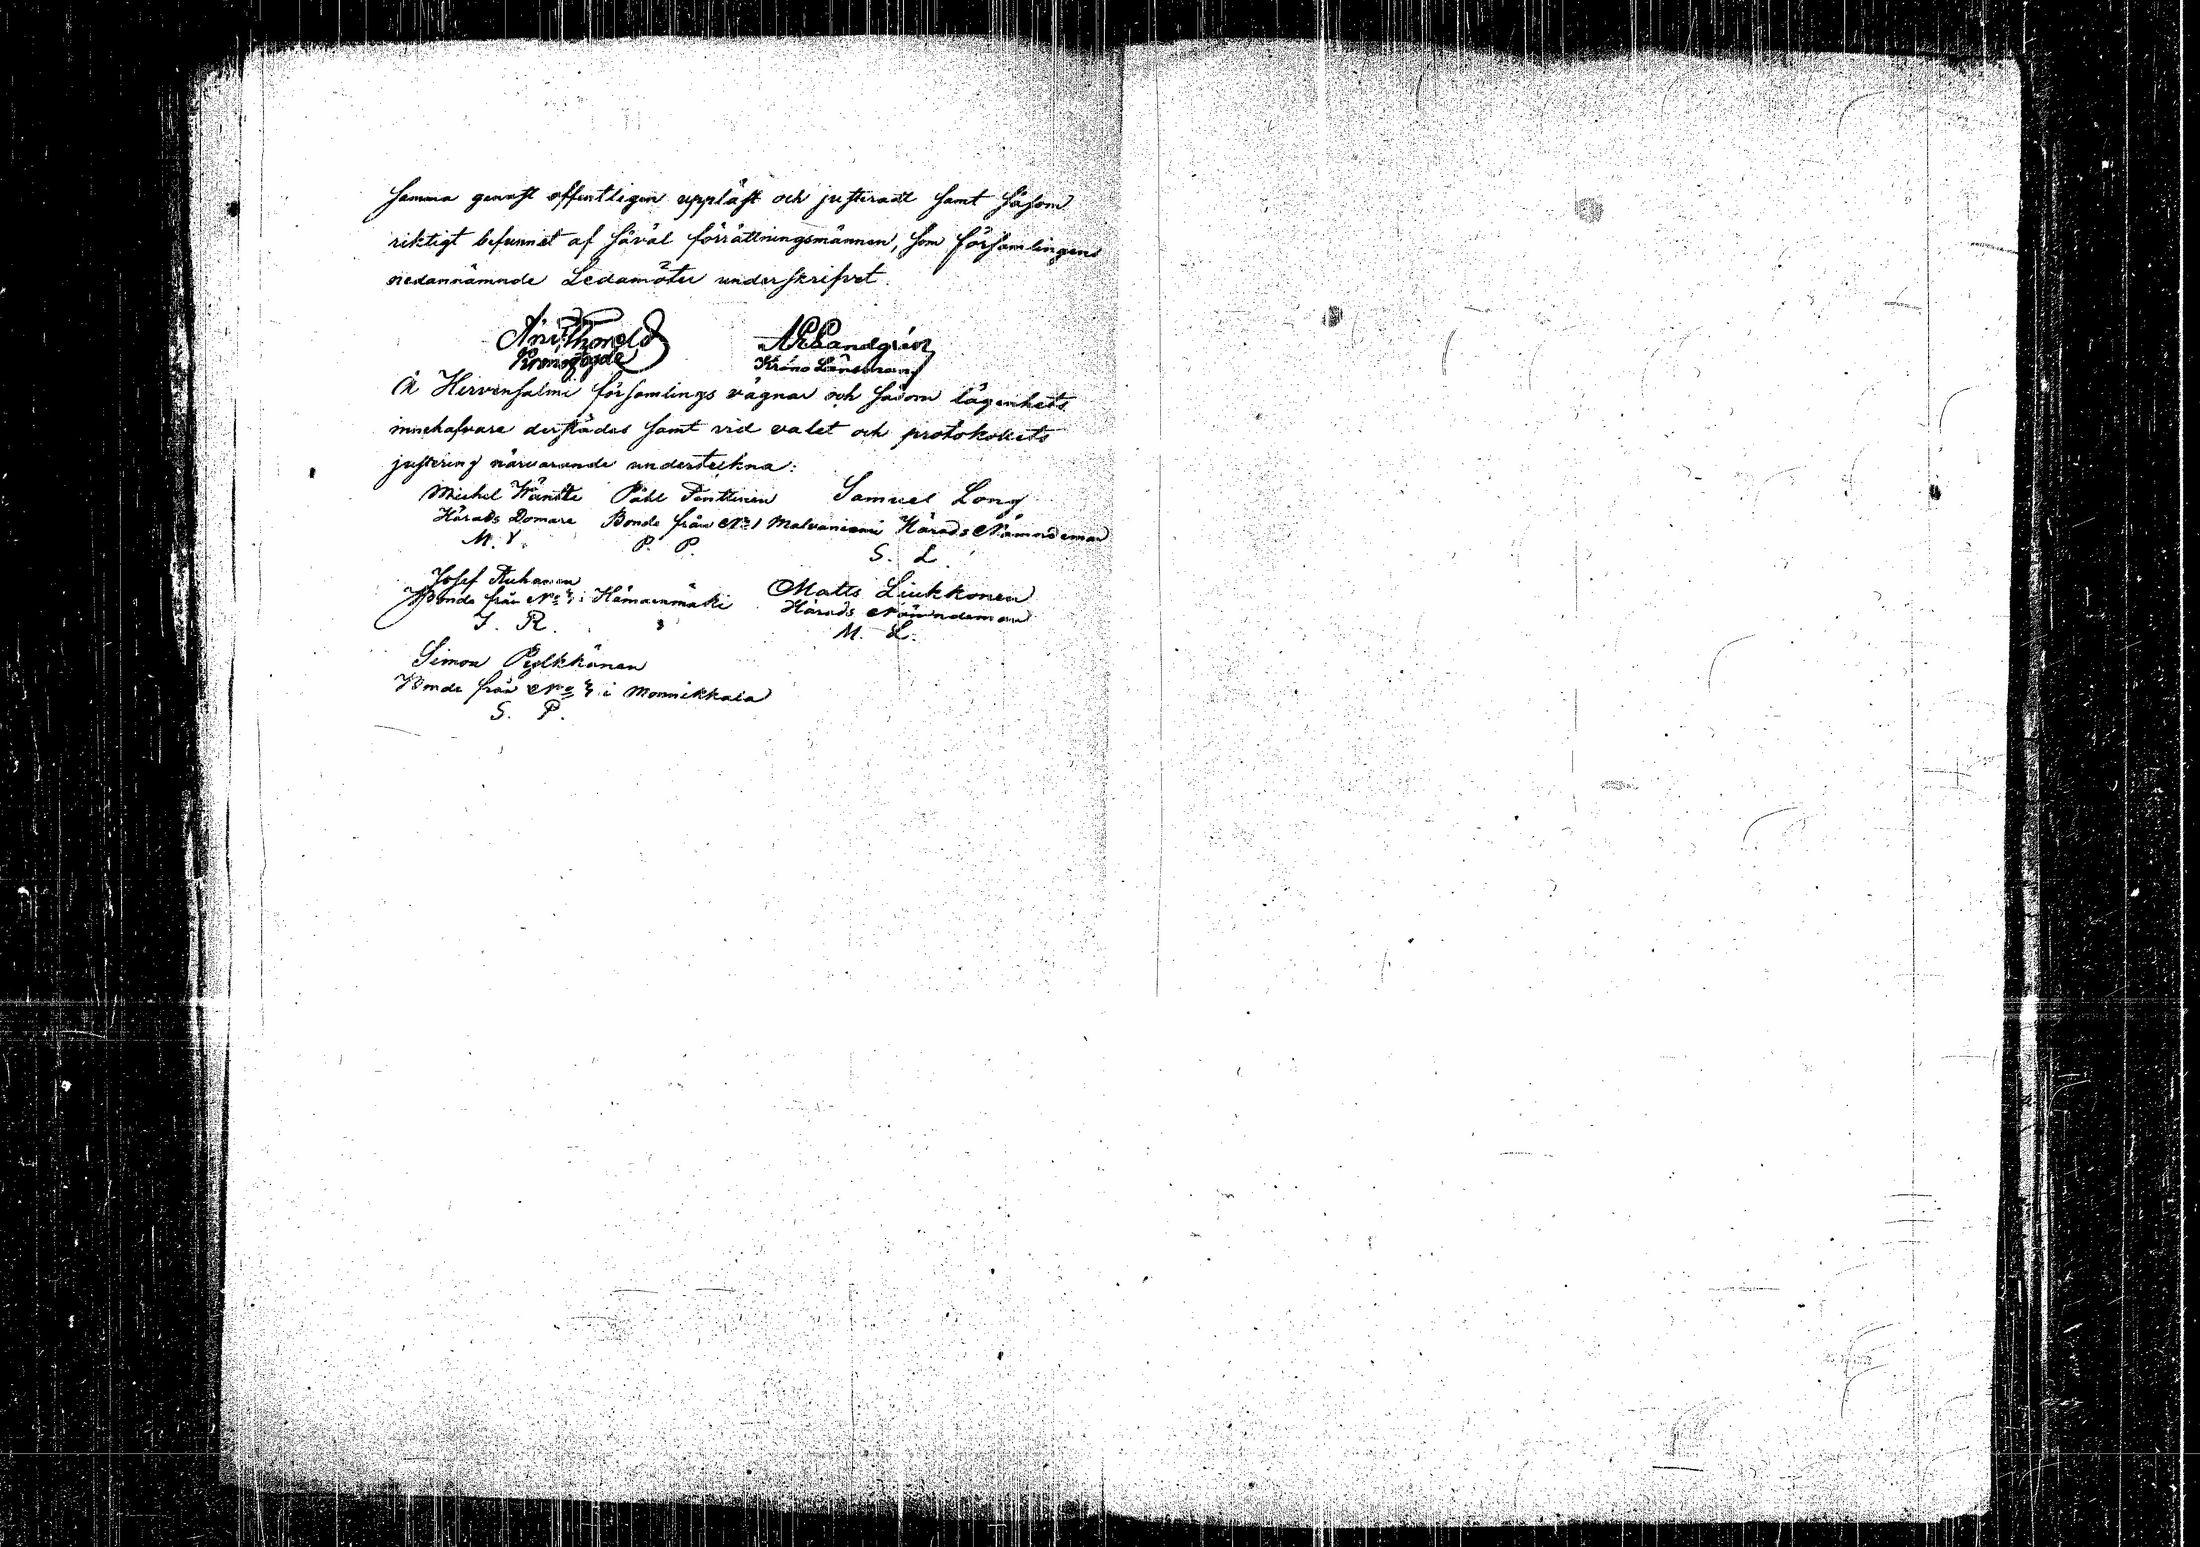 samma genast offentligen uppläst och justeradt samt såsom
riktigt befunnet af såväl förrättningsmännen, som församlingens
nedannämnde Ledamöter underskrifvet.
Kronofogde
Krono Länsman
Å Hirvensalmi församlings vägnar och såsom lägenhets
innehafvare derstädes samt vid valet och protokollets
justering närvarande underteckna:
Michel Påhl Penttinen Samuel Long
Härads Domare Bonde från No 1 Malvaniemi Härads Nämndeman
M. P. P. S. L.
Josef Ruhanen Matts Liukkonen
Bonde från No i Hämeenmäki Härads Nämndeman
J. R. M. L.
Simon Pylkkänen
Bonde från No i Monnikkala
S. P.